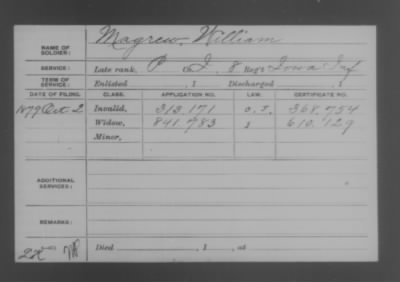 NAME OF SOLDIER: Magrew, William
SERVICE: Late rank, P Co. I, 8 Reg't Iowa Inf
TERM OF SERVICE: Enlisted , 1 Discharged , 1
DATE OF FILING. CLASS. APPLICATION NO. LAW. CERTIFICATE NO.
1879 Oct 2 Invalid, 313.171 368.754
Widow, 841.783 610.129
Minor,
ADDITIONAL SERVICES:
REMARKS:
Died , 1 , at